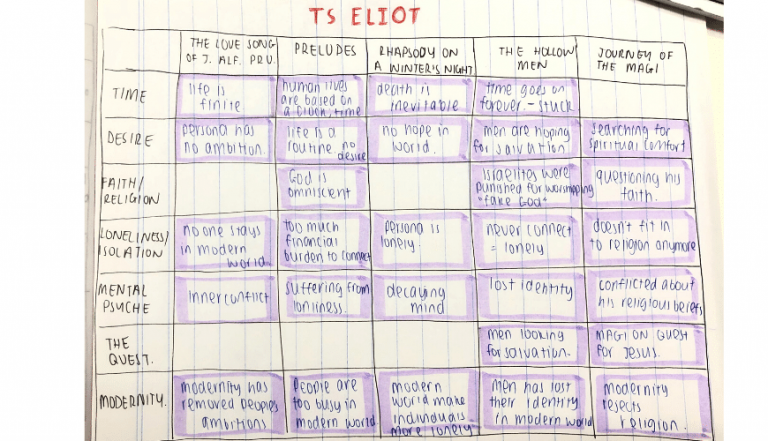 TS ELIOT
THE LOVE SONG
OF J. ALF. PRU.
PRELUDES
RHAPSODY ON
A WINTER'S NIGHT
THE HOLLOW
MEN
JOURNEY OF
THE MAGI
TIME
life is
finite
human lives
are based on
a given time
death is
inevitable
time goes on
forever - stuck
DESIRE
persona has
no ambition.
life is a
routine. no
desire
no hope in
world.
men are hoping
for salvation
searching for
spiritual comfort
FAITH/
RELIGION
God is
omniscent
Israelites were
punished for worshipping
"fake God"
questioning his
faith.
LONELINESS/
ISOLATION
no one stays
in modern
world.
too much
financial
burden to connect
persona is
lonely.
never connect
= lonely
doesn't fit in
to religion anymore
MENTAL
PSYCHE
inner conflict
suffering from
lonliness.
decaying
mind
lost identity
conflicted about
his religious beliefs
THE
QUEST.
men looking
for salvation.
MAGI ON QUEST
for JESUS.
MODERNITY.
modernity has
removed peoples
ambitions
People are
too busy in
modern world
modern
world make
individuals
more lonely
men has lost
their identity
in modern world
modernity
rejects
religion.